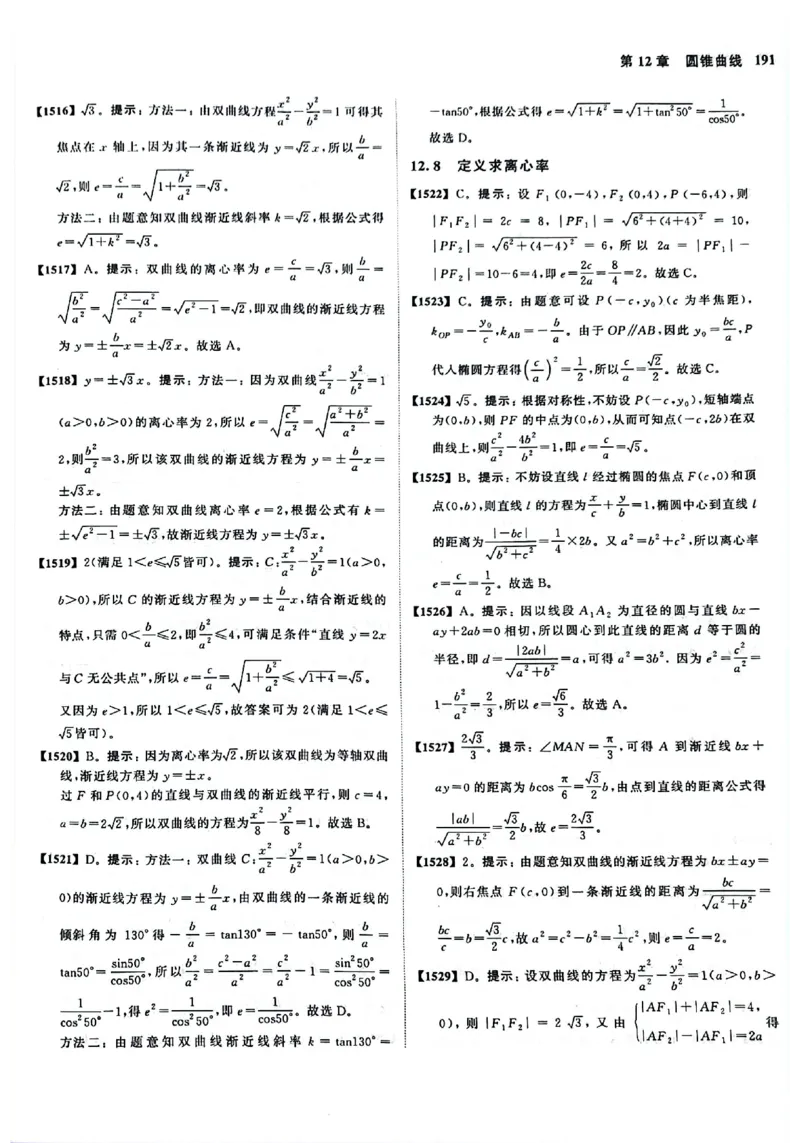 第12章 圆锥曲线 191
【1516】√3。提示:方法一:由双曲线方程x²/a²-y²/b²=1可得其
焦点在x轴上,因为其一条渐近线为y=√2x,所以b/a=
√2,则e=c/a=√(1+b²/a²)=√3。
方法二:由题意知双曲线渐近线斜率k=√2,根据公式得
e=√(1+k²)=√3。
【1517】A。提示:双曲线的离心率为e=c/a=√3,则b/a=
√(b²/a²)=√((c²-a²)/a²)=√(e²-1)=√2,即双曲线的渐近线方程
为y=±b/a x=±√2x。故选A。
【1518】y=±√3x。提示:方法一:因为双曲线x²/a²-y²/b²=1
(a>0,b>0)的离心率为2,所以e=√(c²/a²)=√((a²+b²)/a²)=
2,则b²/a²=3,所以该双曲线的渐近线方程为y=±b/a x=
±√3x。
方法二:由题意知双曲线离心率e=2,根据公式有k=
±√(e²-1)=±√3,故渐近线方程为y=±√3x。
【1519】2(满足1<e≤√5皆可)。提示:C:x²/a²-y²/b²=1(a>0,
b>0),所以C的渐近线方程为y=±b/a x,结合渐近线的
特点,只需0<b/a≤2,即b²/a²≤4,可满足条件“直线y=2x
与C无公共点”,所以e=c/a=√(1+b²/a²)≤√(1+4)=√5。
又因为e>1,所以1<e≤√5,故答案可为2(满足1<e≤
√5皆可)。
【1520】B。提示:因为离心率为√2,所以该双曲线为等轴双曲
线,渐近线方程为y=±x。
过F和P(0,4)的直线与双曲线的渐近线平行,则c=4,
a=b=2√2,所以双曲线的方程为x²/8-y²/8=1。故选B。
【1521】D。提示:方法一:双曲线C:x²/a²-y²/b²=1(a>0,b>
0)的渐近线方程为y=±b/a x,由双曲线的一条渐近线的
倾斜角为130°得-b/a=tan130°=-tan50°,则b/a=
tan50°=sin50°/cos50°,所以b²/a²=(c²-a²)/a²=c²/a²-1=sin²50°/cos²50°=
1/cos²50°-1,得e²=1/cos²50°,即e=1/cos50°。故选D。
方法二:由题意知双曲线渐近线斜率k=tan130°=
-tan50°,根据公式得e=√(1+k²)=√(1+tan²50°)=1/cos50°。
故选D。
12.8 定义求离心率
【1522】C。提示:设F₁(0,-4),F₂(0,4),P(-6,4),则
|F₁F₂|=2c=8,|PF₁|=√(6²+(4+4)²)=10,
|PF₂|=√(6²+(4-4)²)=6,所以2a=|PF₁|-
|PF₂|=10-6=4,即e=2c/2a=8/4=2。故选C。
【1523】C。提示:由题意可设P(-c,y₀)(c为半焦距),
k_OP=-y₀/c,k_AB=-b/a。由于OP∥AB,因此y₀=bc/a,P
代入椭圆方程得(c/a)²=1/2,所以c/a=√2/2。故选C。
【1524】√5。提示:根据对称性,不妨设P(-c,y₀),短轴端点
为(0,b),则PF的中点为(0,b),从而可知点(-c,2b)在双
曲线上,则c²/a²-4b²/b²=1,即e=c/a=√5。
【1525】B。提示:不妨设直线l经过椭圆的焦点F(c,0)和顶
点(0,b),则直线l的方程为x/c+y/b=1,椭圆中心到直线l
的距离为|-bc|/√(b²+c²)=1/4×2b。又a²=b²+c²,所以离心率
e=c/a=1/2。故选B。
【1526】A。提示:因以线段A₁A₂为直径的圆与直线bx-
ay+2ab=0相切,所以圆心到此直线的距离d等于圆的
半径,即d=|2ab|/√(a²+b²)=a,可得a²=3b²。因为e²=c²/a²=
1-b²/a²=2/3,所以e=√6/3。故选A。
【1527】2√3/3。提示:∠MAN=π/3,可得A到渐近线bx+
ay=0的距离为bcosπ/6=√3/2b,由点到直线的距离公式得
|ab|/√(a²+b²)=√3/2b,故e=2√3/3。
【1528】2。提示:由题意知双曲线的渐近线方程为bx±ay=
0,则右焦点F(c,0)到一条渐近线的距离为bc/√(a²+b²)=
bc/c=b=√3/2c,故a²=c²-b²=1/4c²,则e=c/a=2。
【1529】D。提示:设双曲线的方程为x²/a²-y²/b²=1(a>0,b>
0),则|F₁F₂|=2√3,又由{|AF₁|+|AF₂|=4, |AF₂|-|AF₁|=2a得